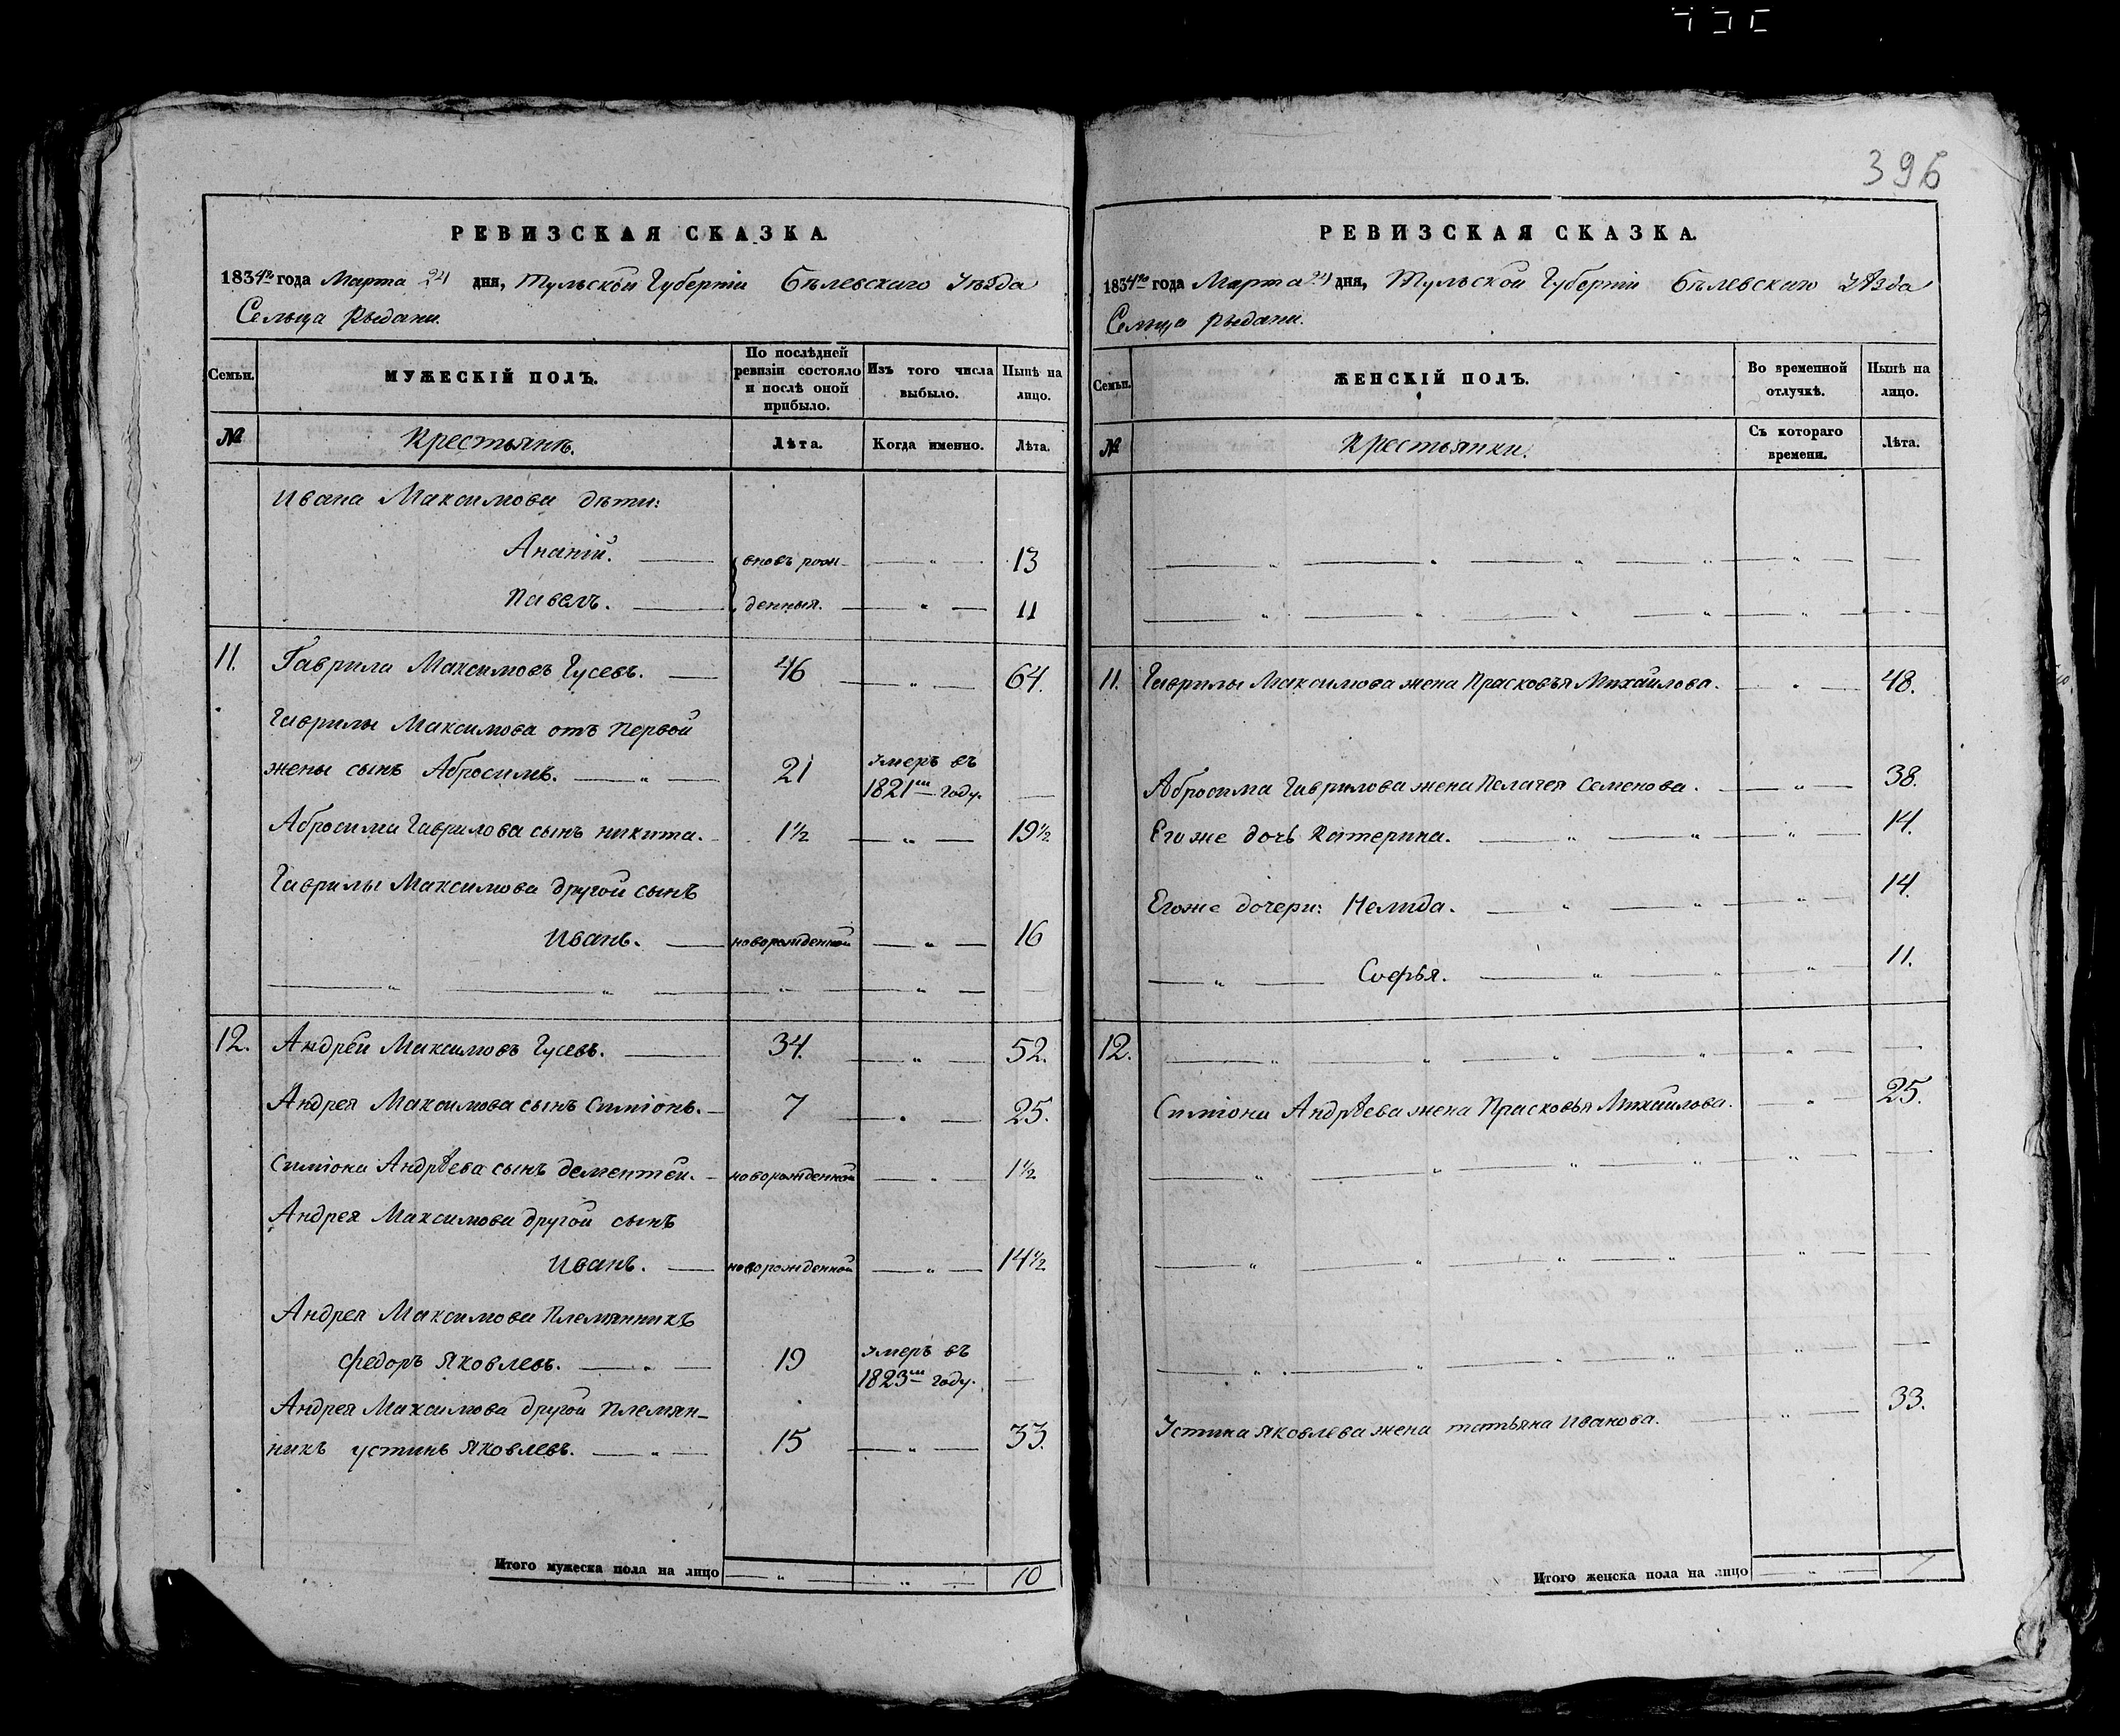 396
РЕВИЗСКАЯ СКАЗКА.
1834го года Марта 24 дня, Тульской Губерніи Бѣлевскаго Уѣзда
Сельца Рыдани.
Семьи.
МУЖЕСКІЙ ПОЛЪ.
По послѣдней ревизіи состояло и послѣ оной прибыло.
Изъ того числа выбыло.
Нынѣ на лицо.
№
Крестьянѣ.
Лѣта.
Когда именно.
Лѣта.
Ивана Максимова дѣти:
Ананій. вновь рож- " 13
Павелъ. денныя. " 11
11. Гаврила Максимовъ Гусевъ. 46 " 64.
Гаврилы Максимова отъ Первой
жены сынъ Абросимъ. " 21 умеръ въ 1821м году.
Абросима Гаврилова сынъ никита. 1½ " 19½
Гаврилы Максимова другой сынъ
Иванъ. новорожденной " 16
" " " "
12. Андрей Максимовъ Гусевъ. 34. " 52.
Андрея Максимова сынъ Симіонъ. 7 " 25.
Симіона Андрѣева сынъ дементей. новорожденной " 1½
Андрея Максимова другой сынъ
Иванъ. новорожденной " 14½
Андрея Максимова Племянникъ
федоръ Яковлевъ. " 19 умеръ въ 1823м году.
Андрея Максимова другой Племян-
никъ устинъ Яковлевъ. " 15 " 33.
Итого мужеска пола на лицо " " 10
РЕВИЗСКАЯ СКАЗКА.
1834го года Марта 24 дня, Тульской Губерніи Бѣлевскаго Уѣзда
Сельца рыдани.
Семьи.
ЖЕНСКІЙ ПОЛЪ.
Во временной отлучкѣ.
Нынѣ на лицо.
№
Крестьянки.
Съ котораго времени.
Лѣта.
" " " "
" " " "
11. Гаврилы Максимова жена Прасковья Михайлова. " 48.
Абросима Гаврилова жена Пелагея Семенова. " 38.
Его же дочь Катерина. " " " 14.
Его же дочери: Нелида. " " " 14.
" Софья. " " " 11.
12. " " " " "
Симіона Андрѣева жена Прасковья Михайлова. " 25.
" " " " "
" " " " "
" " " " "
Устина Яковлева жена татьяна Иванова. " 33.
Итого женска пола на лицо " 7